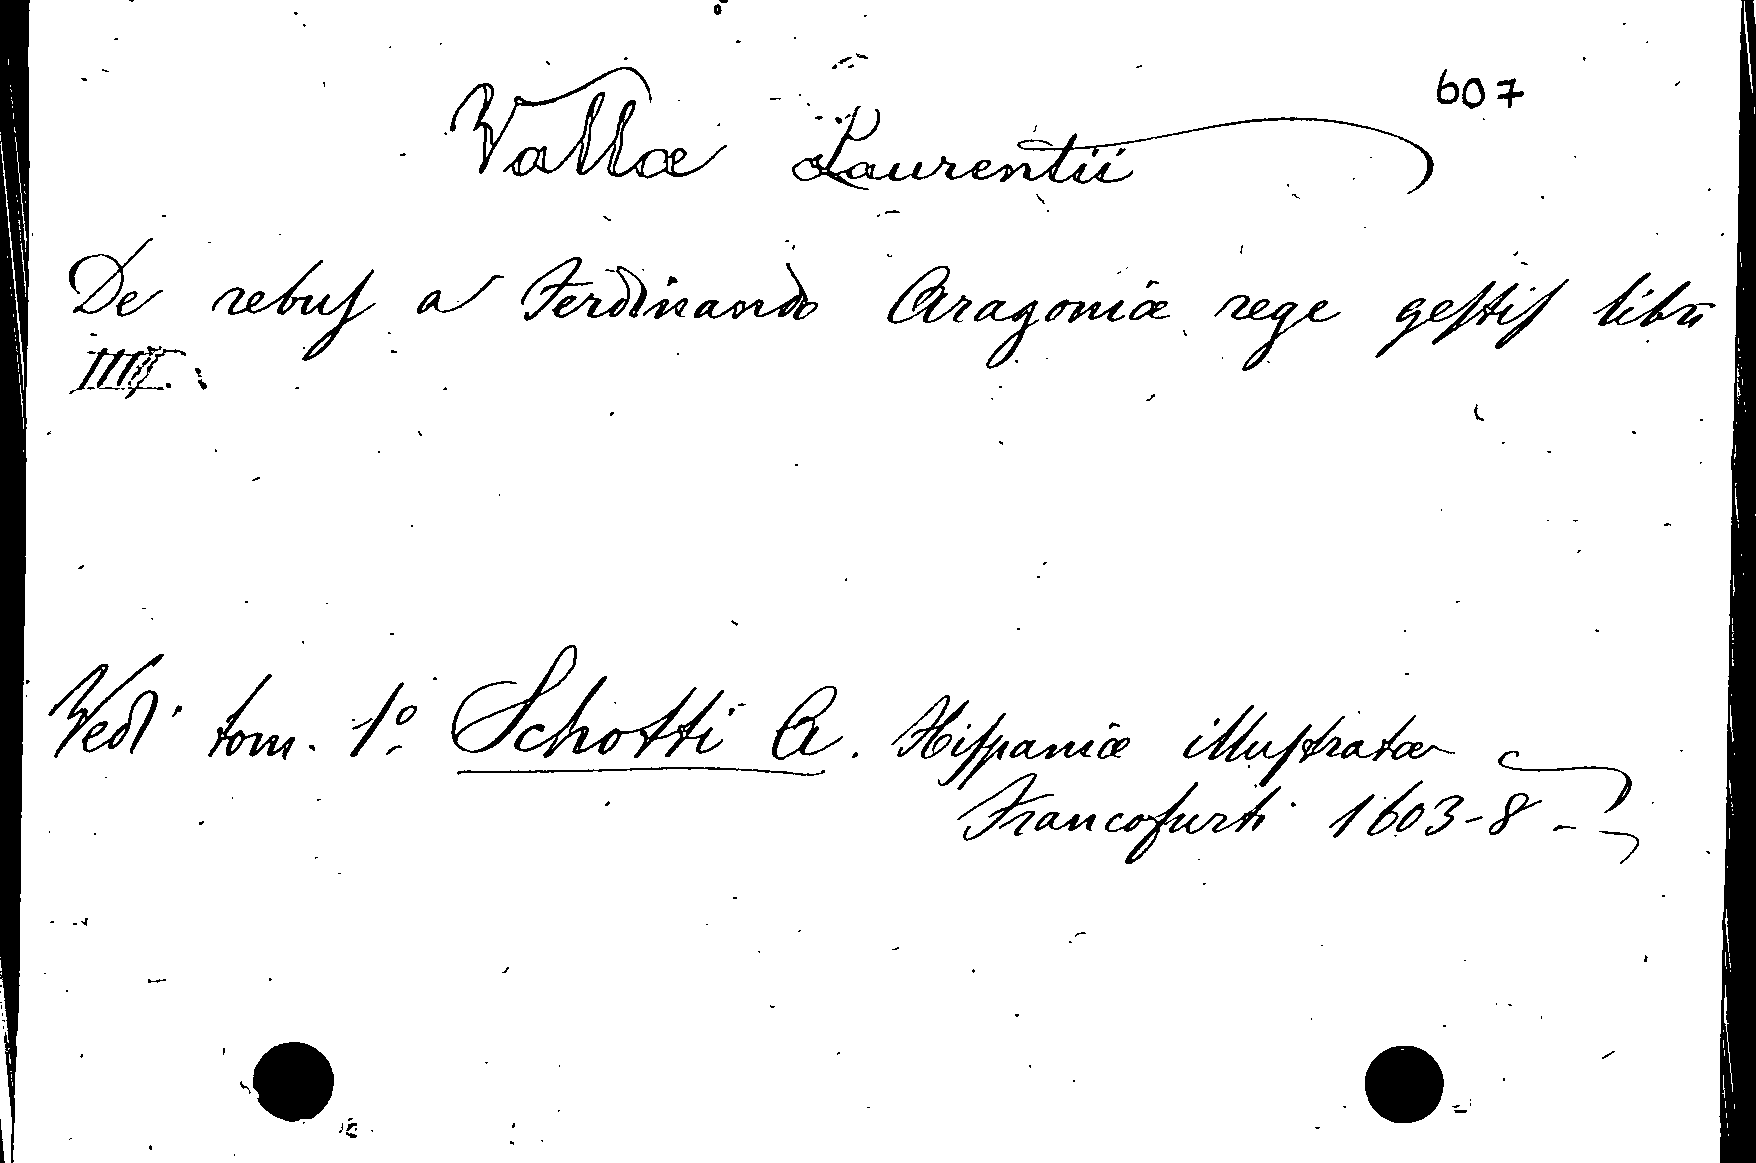 607
Vallæ Laurentii
De rebuſ a Ferdinando Aragoniæ rege geſtiſ libri
IIII.
Vedi tom. 1º Schotti A. Hiſpaniæ illuſtratæ
Francofurti 1603-8